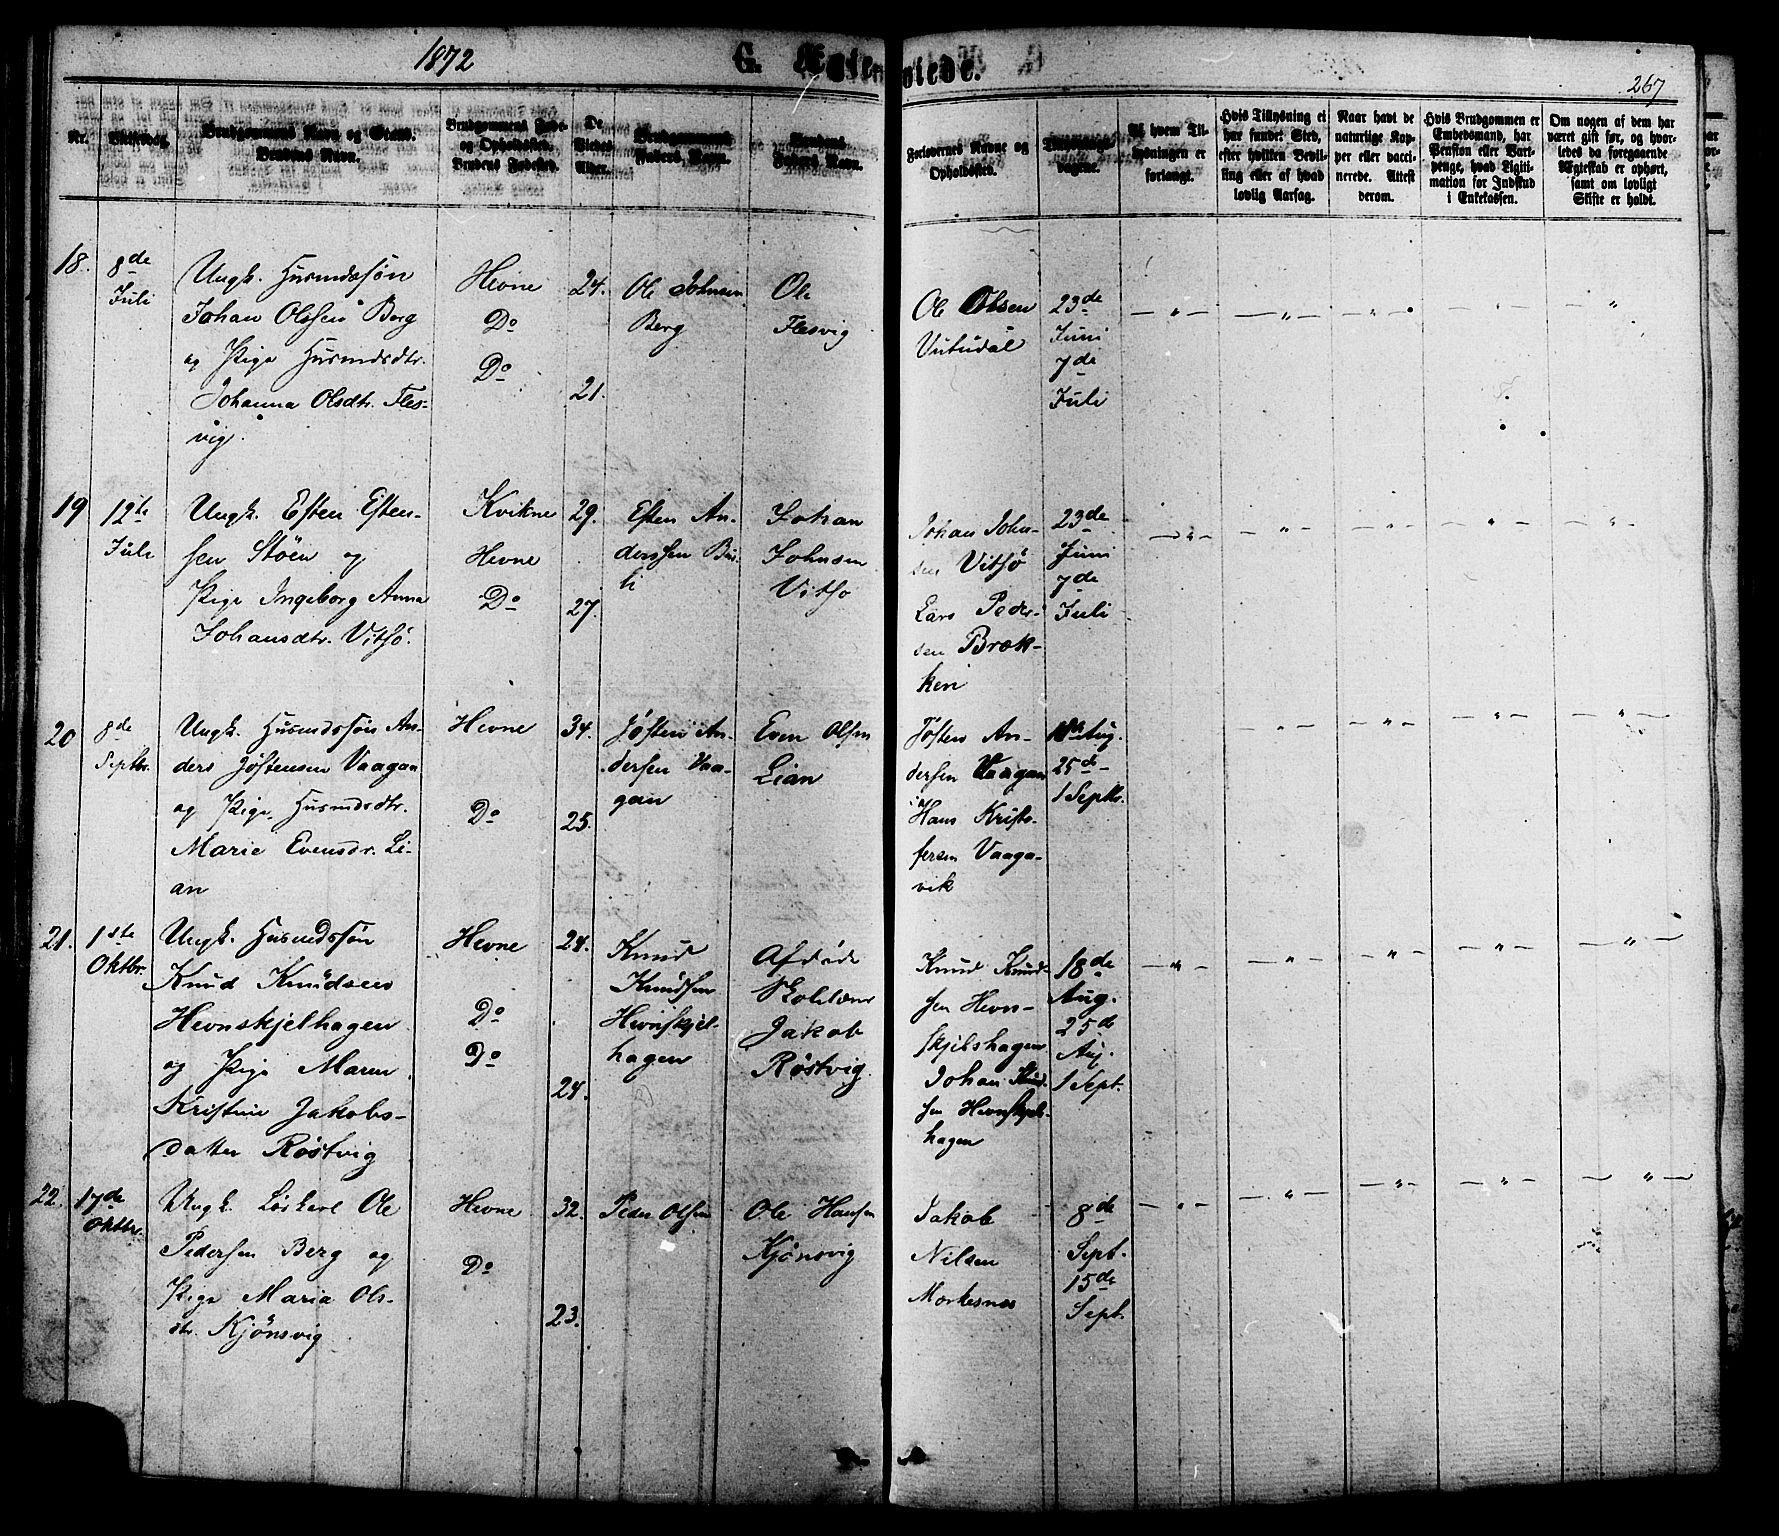 1872
G. Ægteviede.
267
Nr.
Vielsesdag.
Brudgommens Navn og Stand.
Brudens Navn.
Brudgommens Føde-
og Opholdssted.
Brudens Fødested.
De
Viedes
Alder.
Brudgommens
Faders Navn.
Brudens
Faders Navn.
Forlovernes Navne og
Opholdssted.
Tillysnings-
dagene.
Af hvem Til-
lysningen er
forlangt.
Hvis Tillysning ei
har fundet Sted,
efter hvilken Bevil-
ling eller af hvad
lovlig Aarsag.
Naar havt de
naturlige Kop-
per eller vacci-
nerede. Attest
derom.
Hvis Brudgommen er
Embedsmand, har
Pension eller Vart-
penge, hvad Ligiti-
mation for Indskud
i Enkekassen.
Om nogen af dem har
været gift før, og hvor-
ledes da foregaaende
Ægteskab er ophørt,
samt om lovligt
Skifte er holdt.
18.
8de
Juli
Ungk. Husmdssøn
Johan Olssen Berg
og Pige Husmdsdtr.
Johanna Olsdtr. Fles-
vig.
Hevne
Do
Do
24.
21.
Ole Johnsen
Berg
Ole
Flesvig
Ole Olsen
Vutudal
23de
Juni
7de
Juli
19
12te
Juli
Ungk. Esten Esten-
sen Støen og
Pige Ingeborg Anna
Johansdtr. Vitsø.
Kvikne
Hevne
Do
29.
27.
Esten An-
derssen
li
Johan
Johnsen
Vitsø
Johan John-
sen Vitsø
Lars Peder-
sen Brek-
ken
23de
Juni
7de
Juli
20
8de
Septbr.
Ungk. Husmdssøn An-
ders Jøstensen Vaagan
og Pige, Husmdsdtr.
Marie Evensdr. Li-
an
Hevne
Do
34.
25.
Jøsten An-
dersen Vaa-
gan
Even Olsen
Lian
Jøsten An-
dersen Vaagan
og
Hans Kristo-
fersen Vaaga-
vik
18de Aug.
25de
1 Septbr.
21.
1ste
Oktbr.
Ungk. Husmdssøn
Knud Knudsen
Hevnskjelhagen
og Pige Maren
Kristine Jakobs-
datter Røstvig
Hevne
Do
Do
24.
24.
Knud
Knudsen
Hevnskjel-
hagen
Afdøde
Skolelærer
Jakob
Røstvig.
Knud Knud-
sen Hevn-
skjelshagen
Johan Knud-
sen Hevnskjels-
hagen
18de
Aug.
25de
Aug.
1 Sept.
22.
17de
Oktbr.
Ungk. Løskarl Ole
Pedersen Berg og
Pige Maria Ols-
dtr. Kjønsvig
Hevne
Do
32.
23.
Peder Olsen
Ole Hansen
Kjønsvig
Jakob
Nilsen
Morkesnes
8de
Sept.
15de
Sept.